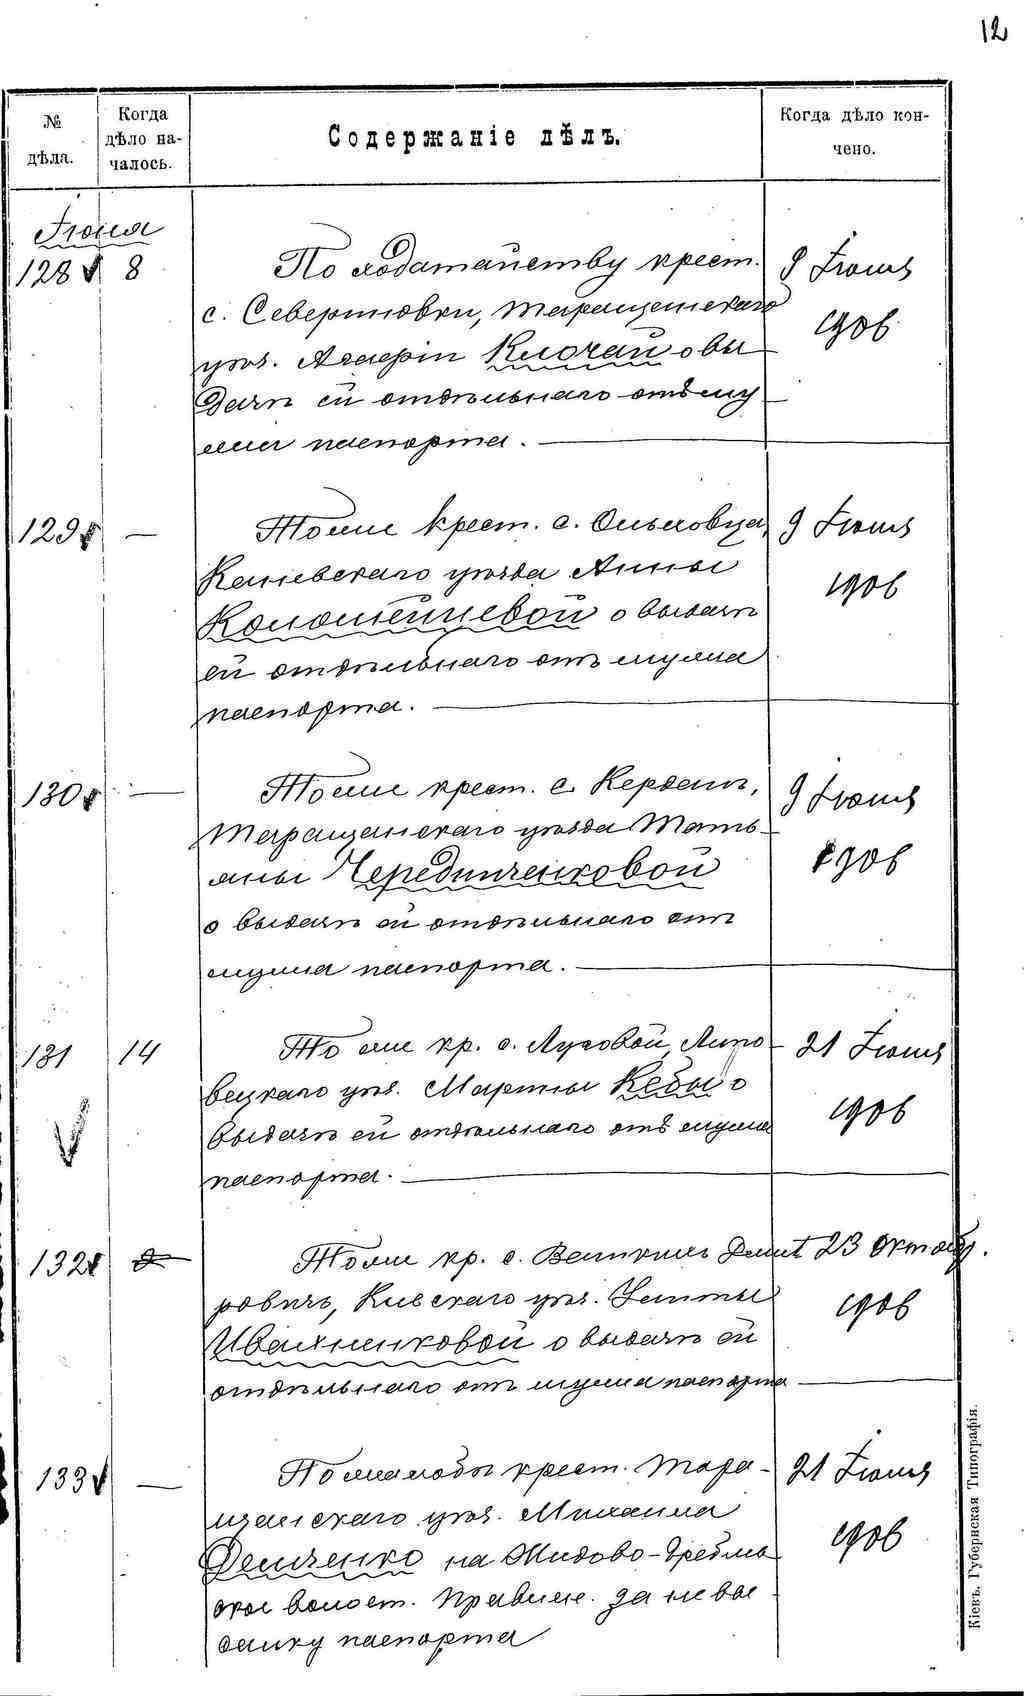 12
№ дѣла.
Когда дѣло началось.
Содержаніе дѣлъ.
Когда дѣло кончено.
Іюня
128 8 По ходатайству крест. 9 Іюня
с. Севериновки, Таращанскаго 1906
уѣз. Ключай о вы
дачѣ ей отдѣльнаго отъ му
жа паспорта.
129 — Тоже крест. с. Ольховца, 9 Іюня
Каневскаго уѣзда Анны 1906
Коломѣйцевой о выдачѣ
ей отдѣльнаго отъ мужа
паспорта.
130 — Тоже крест. с. Кердань, 9 Іюня
Таращанскаго уѣзда Тать- 1906
яны Чередниченковой
о выдачѣ ей отдѣльнаго отъ
мужа паспорта.
131 14 Тоже кр. с. Луговой, Липо- 21 Іюня
вецкаго уѣз. Марты Кебы о 1906
выдачѣ ей отдѣльнаго отъ мужа
паспорта.
132 Тоже кр. с. Великихъ Дмит 23 Октяб.
ровичъ, Кіевскаго уѣз. 1906
Ивахненковой о выдачѣ ей
отдѣльнаго отъ мужа паспорта
133 — По жалобѣ крест. Тара- 21 Іюня
щанскаго уѣз. Михаила 1906
Демченко на Жидово-Гребль
ское волост. Правлен. за невы
сылку паспорта
Кіевъ. Губернская Типографія.